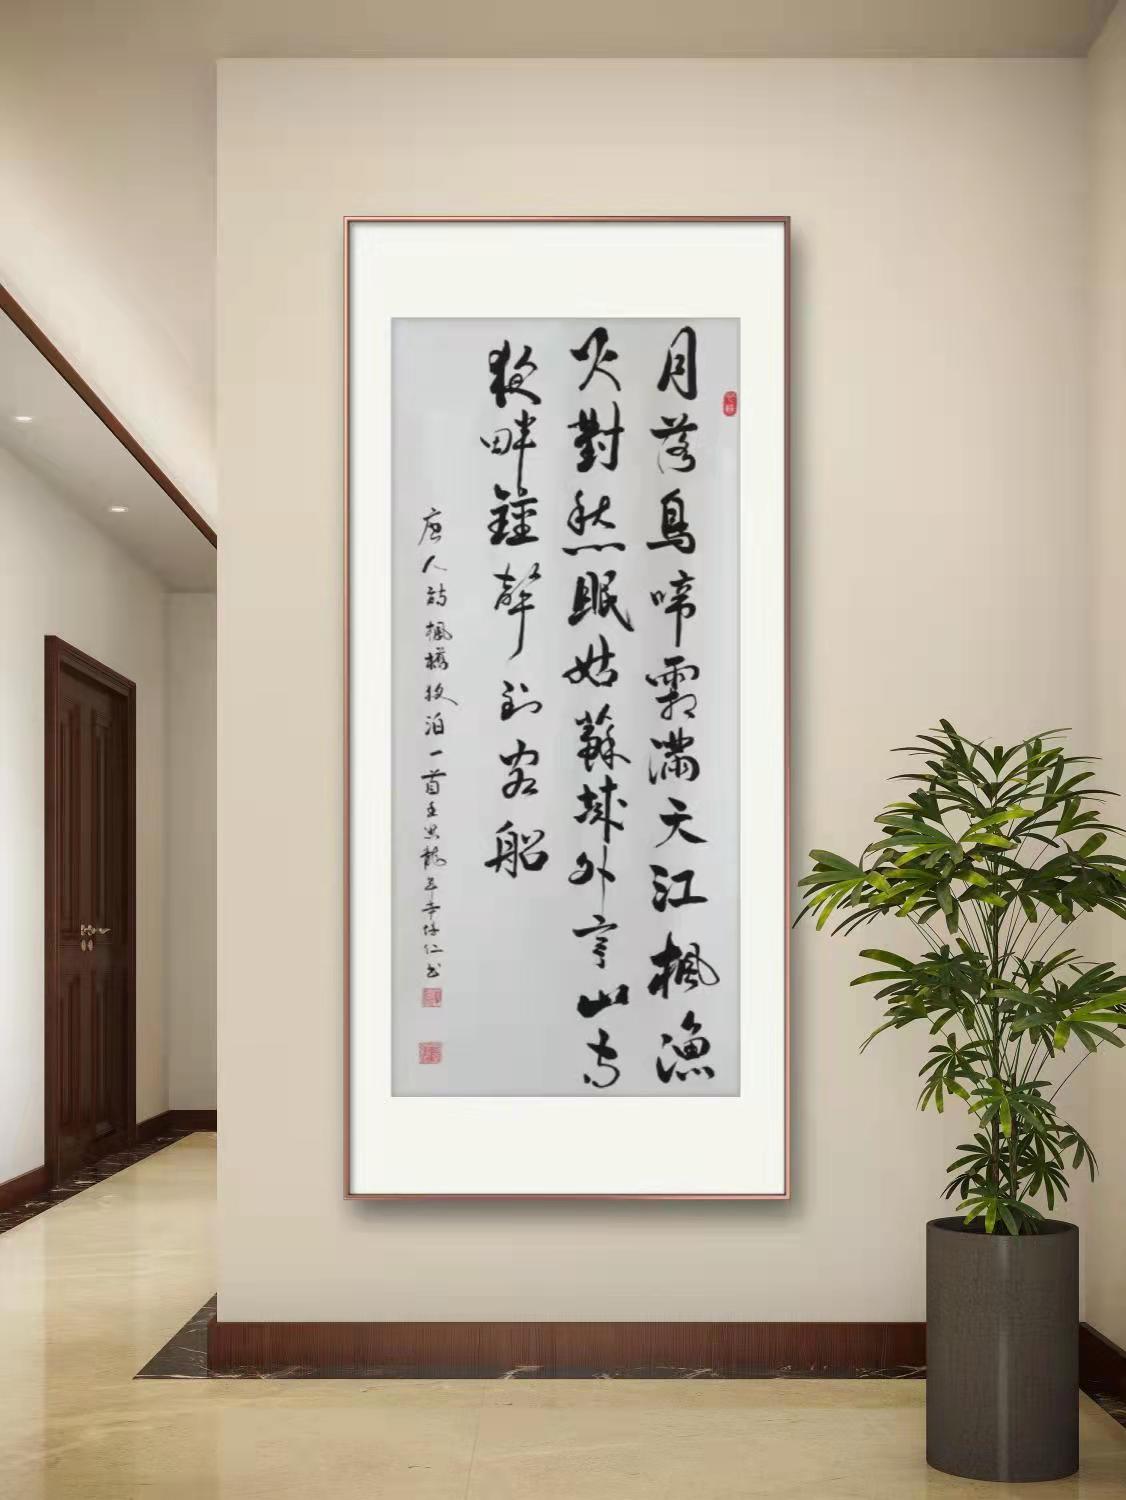 月落烏啼霜滿天江楓漁
火對愁眠姑蘇城外寒山寺
夜畔鐘聲到客船
唐人詩楓橋夜泊一首壬辰龍年仁書